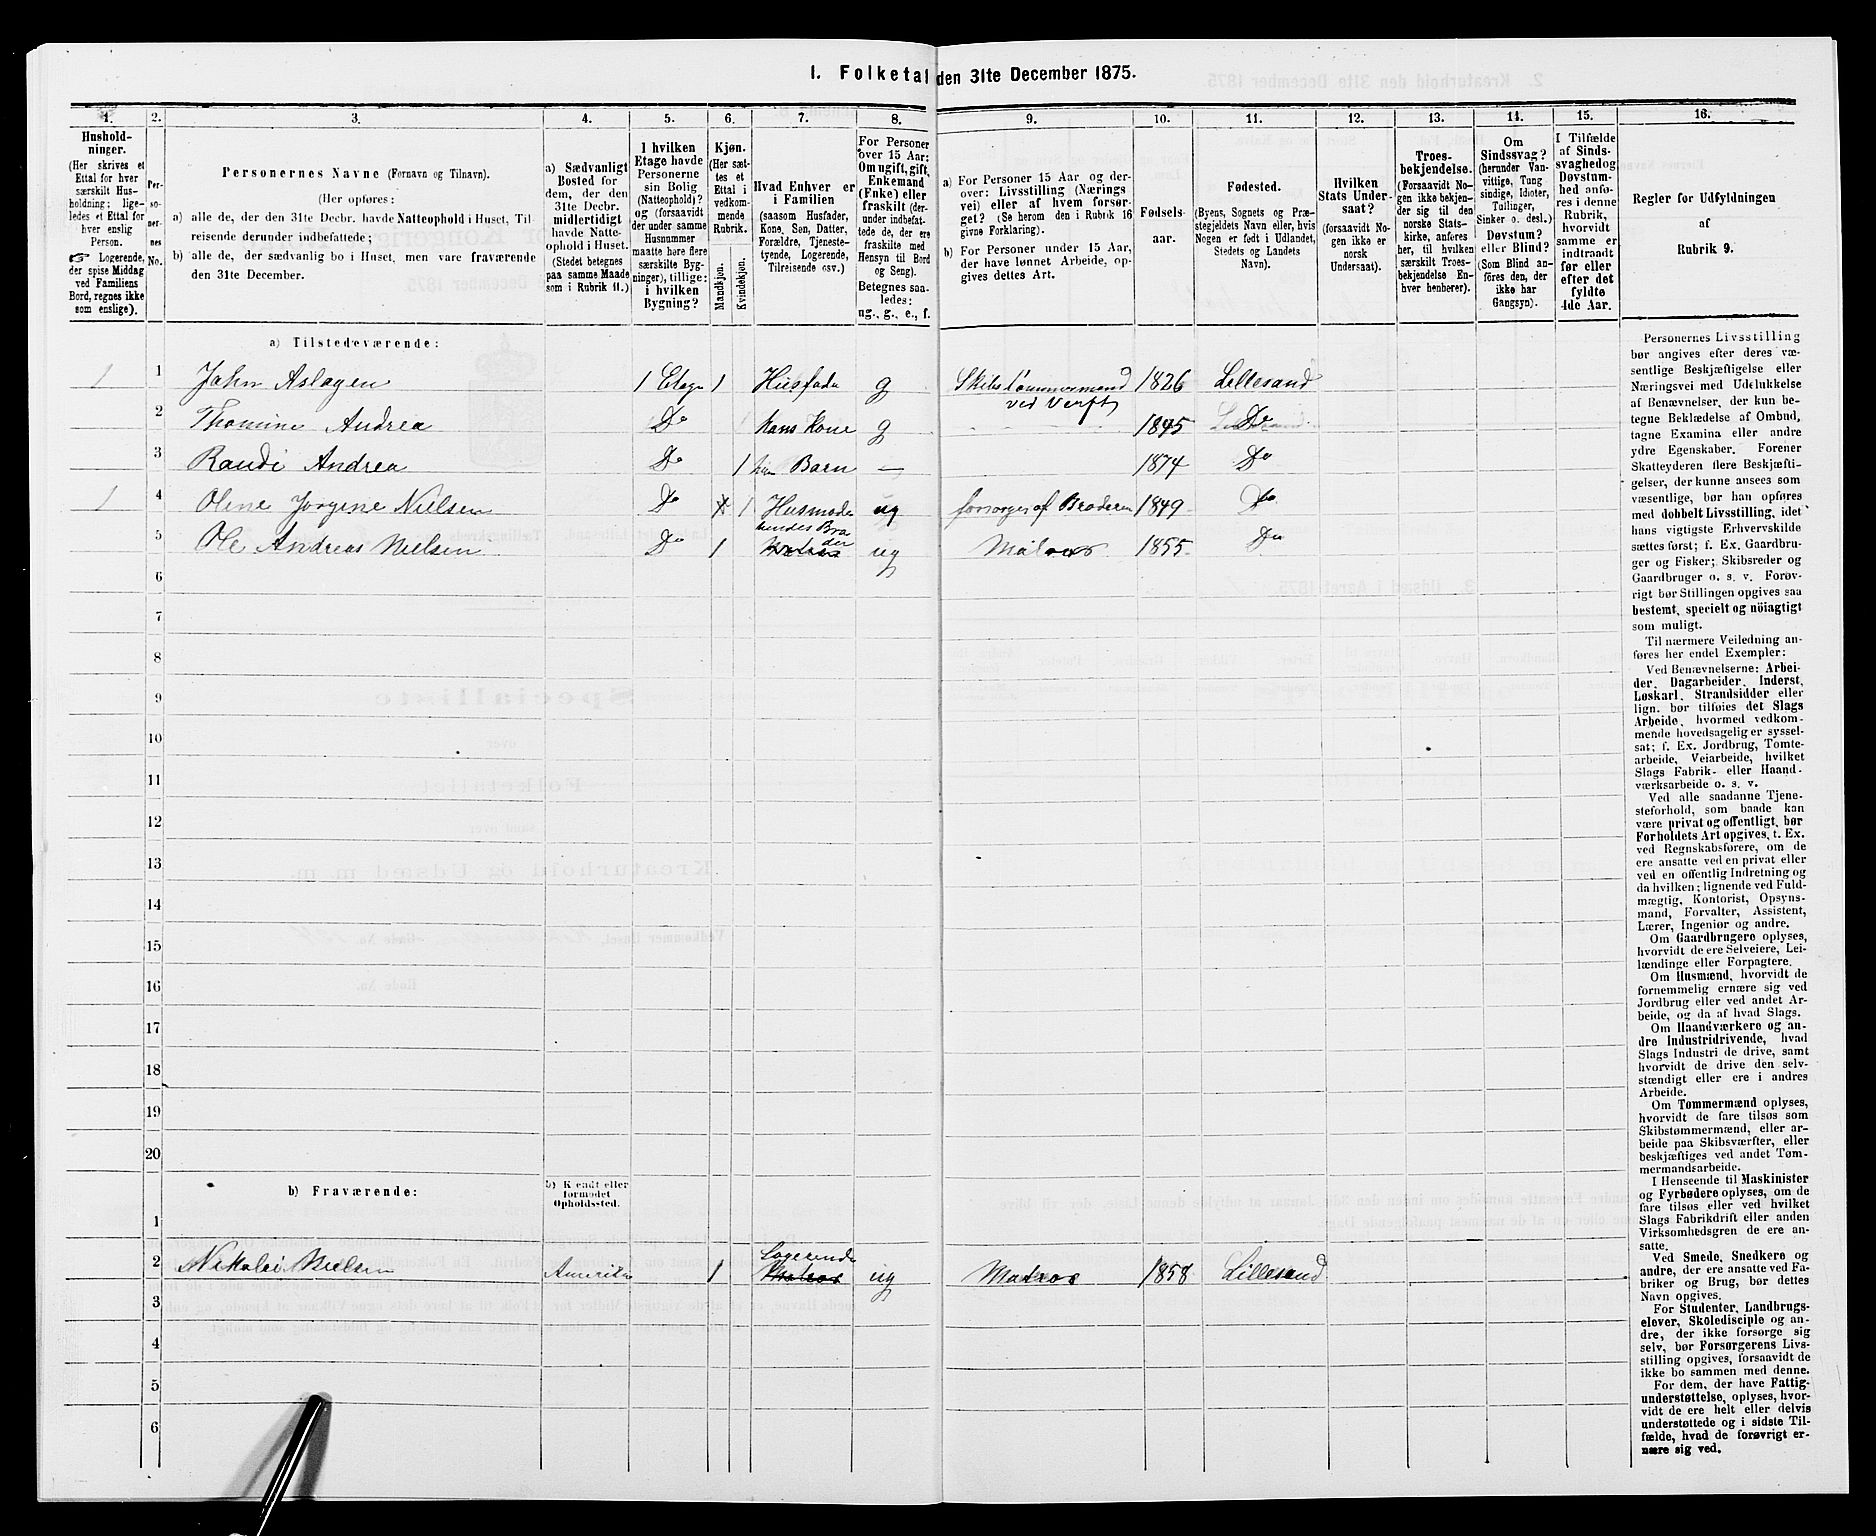 I. Folketal den 31te December 1875.
1. 2. 3. 4. 5. 6. 7. 8. 9. 10. 11. 12. 13. 14. 15. 16.
Hushold-
ninger.
(Her skrives et
Ettal for hver
særskilt Hus-
holdning; lige-
ledes et Ettal for
hver enslig
Person.
☞ Logerende,
der spise Middag
ved Familiens
Bord, regnes ikke
som enslige).
Per-
so-
ner-
nes
No.
Personernes Navne (Fornavn og Tilnavn).
(Her opføres:
a) alle de, der den 31te Decbr. havde Natteophold i Huset, Til-
reisende derunder indbefattede;
b) alle de, der sædvanlig bo i Huset, men vare fraværende
den 31te December.
a) Sædvanligt
Bosted for
dem, der den
31te Decbr.
midlertidigt
havde Natte-
ophold i Huset.
(Stedet betegnes
paa samme Maade
som i Rubrik 11.)
I hvilken
Etage havde
Personerne
sin Bolig
(Natteophold)?
og (forsaavidt
der under samme
Husnummer
maatte høre flere
særskilte Byg-
ninger), tillige:
i hvilken
Bygning?
Kjøn.
(Her sæt-
tes et
Ettal i
vedkom-
mende
Rubrik.
Mandkjøn.
Kvindekjøn.
Hvad Enhver er
i Familien
(saasom Husfader,
Kone, Søn, Datter,
Forældre, Tjeneste-
tyende, Logerende,
Tilreisende osv.)
For Personer
over 15 Aar:
Om ugift, gift,
Enkemand
(Enke) eller
fraskilt (der-
under indbefat-
tede de, der ere
fraskilte med
Hensyn til Bord
og Seng).
Betegnes saa-
ledes:
ug., g., e., f.
a) For Personer 15 Aar og der-
over: Livsstilling (Nærings
vei) eller af hvem forsør-
get? (Se herom den i Rubrik 16
givne Forklaring).
b) For Personer under 15 Aar,
der have lønnet Arbeide, op-
gives dettes Art.
Fødsels-
aar.
Fødested.
(Byens, Sognets og Præ-
stegjeldets Navn eller, hvis
Nogen er født i Udlandet,
Stedets og Landets
Navn).
Hvilken
Stats Under-
saat?
(forsaavidt No-
gen ikke er
norsk
Undersaat).
Troes-
bekjendelse.
(Forsaavidt No-
gen ikke bekjen-
der sig til den
norske Stats-
kirke, anføres
her, til hvilken
særskilt Troes-
bekjendelse En-
hver henhører).
Om
Sindssvag?
(herunder Van-
vittige, Tung
sindige, Idioter,
Tullinger,
Sinker o. desl.)
Døvstum?
eller Blind?
(Som Blind an-
føres den, der
ikke har
Gangsyn).
I Tilfælde
af Sinds-
svaghed og
Døvstum-
hed anfø-
res i denne
Rubrik,
hvorvidt
samme er
indtraadt
før eller
efter det
fyldte
4de Aar.
Regler for Udfyldningen
af
Rubrik 9.
a) Tilstedeværende:
1 1 John Aslagen 1 Etage 1 Husfader g Skibstømmermand ved Verft 1826 Lillesand
2 Thomine Andrea Do hans Kone g 1845 Do
3 Randi Andrea Do 1 Barn – 1874 Do
1 4 Olene Jorgene Nielsen Do 1 Husmoder ug forsørges af Broderen 1849 Do
5 Ole Andreas Nielsen Do 1 hendes Broder ug Matros 1855 Do
6
7
8
9
10
11
12
13
14
15
16
17
18
19
20
b) Fraværende:
b) Kjendt eller
formodet
Opholdssted.
1
2 Nikolai Nielsen Amerika 1 Logerende Matros ug Matros 1858 Lillesand
3
4
5
6
Personernes Livsstilling
bør angives efter deres væ-
sentlige Beskjæftigelse eller
Næringsvei med Udelukkelse
af Benævnelser, der kun be-
tegne Beklædelse af Ombud,
tagne Examina eller andre
ydre Egenskaber. Forener
Skatteyderen flere Beskjæfti-
gelser, der kunne ansees som
væsentlige, bør han opføres
med dobbelt Livsstilling, idet
hans vigtigste Erhvervskilde
sættes først; f. Ex. Gaardbru-
ger og Fisker; Skibsreder og
Gaardbruger o. s. v. Forøv-
rigt bør Stillingen opgives saa
bestemt, specielt og nöiagtigt
som muligt.
Til nærmere Veiledning an-
føres her endel Exempler:
Ved Benævnelserne: Arbei-
der, Dagarbeider, Inderst,
Løskarl, Strandsidder eller
lign. bør tilføies det Slags
Arbeide, hvormed vedkom-
mende hovedsagelig er syssel-
sat; f. Ex. Jordbrug, Tomte-
arbeide, Veiarbeide, hvilket
Slags Fabrik- eller Haand-
værksarbeide o. s. v.
Ved alle saadanne Tjene-
steforhold, som baade kan
være privat og offentligt, bør
Forholdets Art opgives, t. Ex.
ved Regnskabsførere, om de
ere ansatte ved en privat eller
ved en offentlig Indretning og
da hvilken; lignende ved Fuld-
mægtig, Kontorist, Opsyns-
mand, Forvalter, Assistent,
Lærer, Ingeniør og andre.
Om Gaardbrugere oplyses,
hvorvidt de ere Selveiere, Lei-
lændinge eller Forpagtere.
Om Husmænd, hvorvidt de
fornemmelig ernære sig ved
Jordbrug eller ved andet Ar-
beide, og da af hvad Slags.
Om Haandværkere og an-
dre Industridrivende, hvad
Slags Industri de drive, samt
hvorvidt de drive den selv-
stændigt eller ere i andres
Arbeide.
Om Tømmermænd oplyses,
hvorvidt de fare tilsøs som
Skibstømmermænd, eller ar-
beide paa Skibsværfter, eller
beskjæftiges ved andet Tøm-
mermandsarbeide.
I Henseende til Maskinister
og Fyrbødere oplyses, om de
fare tilsøs eller ved hvilket
Slags Fabrikdrift eller anden
Virksomhedsgren de ere an-
satte.
Ved Smede, Snedkere og
andre, der ere ansatte ved Fa-
briker og Brug, bør dettes
Navn opgives.
For Studenter, Landbrugs-
elever, Skoledisciple og an-
dre, der ikke forsørge sig
selv, bør Forsørgerens Livs-
stilling opgives, forsaavidt de
ikke bo sammen med denne.
For dem, der have Fattig-
understøttelse, oplyses, hvor-
vidt de ere helt eller delvis
understøttede og i sidste Til-
fælde, hvad de forøvrigt er-
nære sig ved.